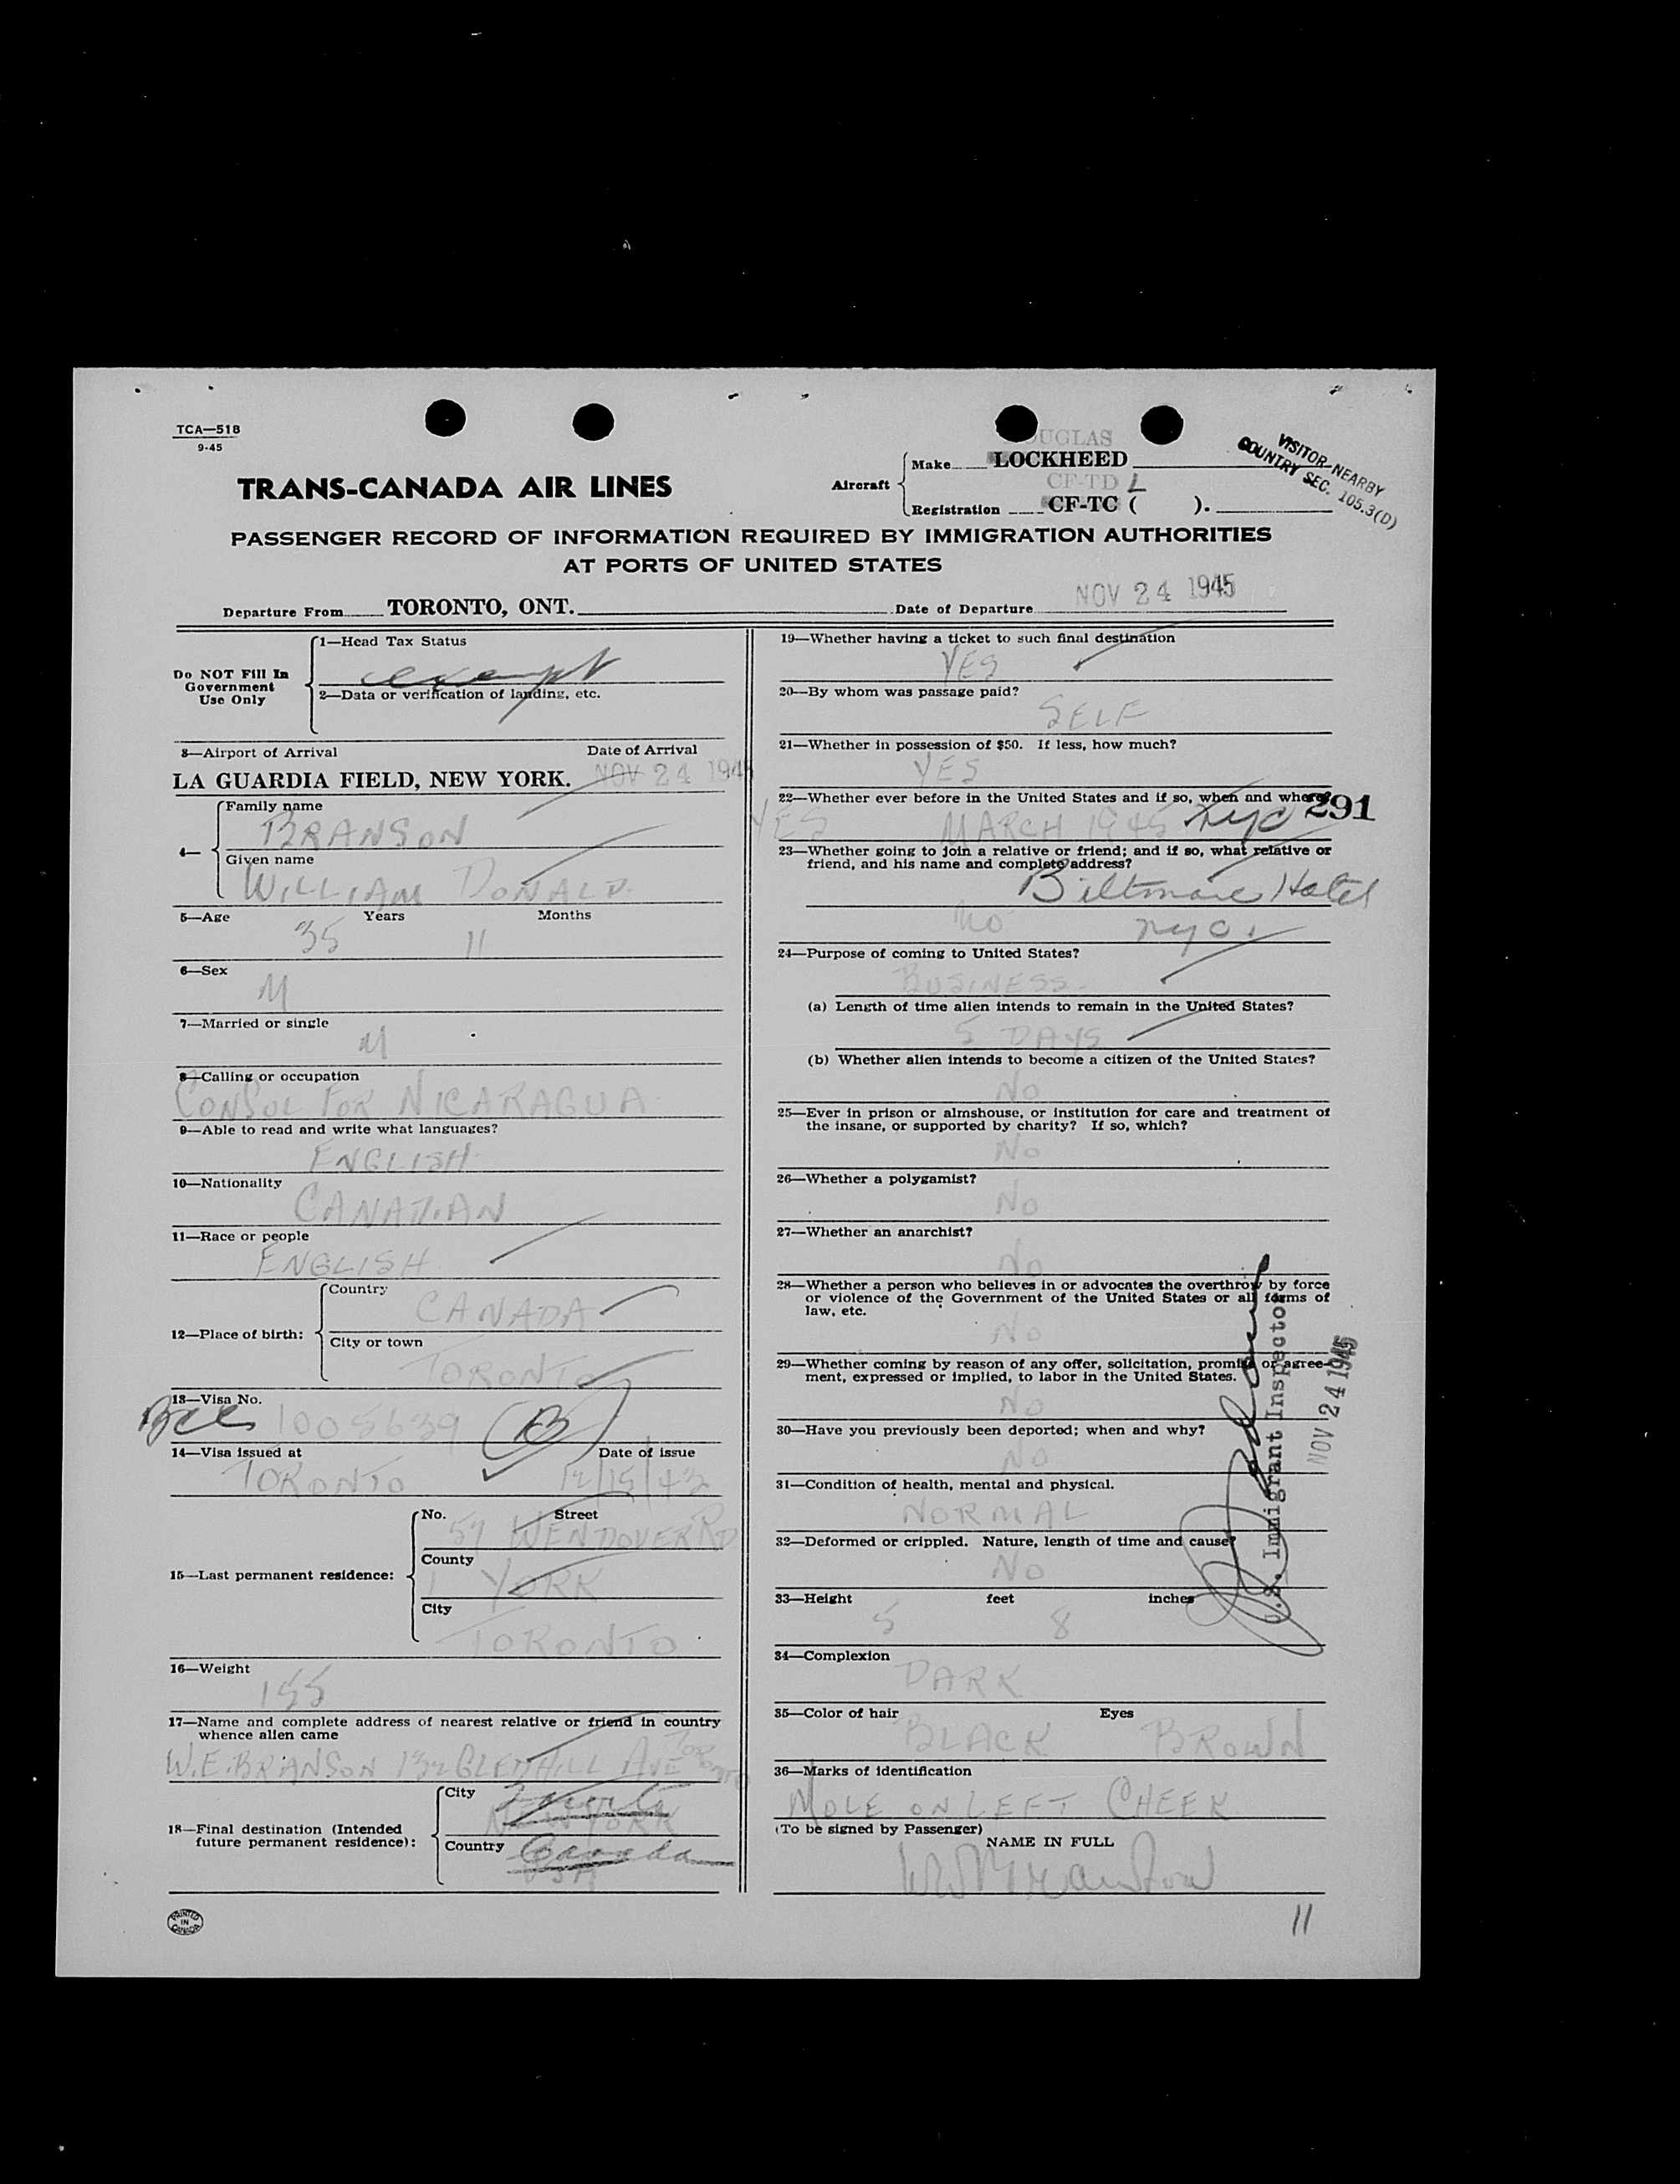 TCA—518
9-45
VISITOR-NEARBY
COUNTRY SEC. 105.3(D)
TRANS-CANADA AIR LINES
Aircraft
UGLAS
Make LOCKHEED
CF-TD L
Registration CF-TC ( ).
PASSENGER RECORD OF INFORMATION REQUIRED BY IMMIGRATION AUTHORITIES
AT PORTS OF UNITED STATES
Departure From TORONTO, ONT. Date of Departure NOV 24 1945
Do NOT Fill In
Government
Use Only
1—Head Tax Status
exempt
2—Data or verification of landing, etc.
3—Airport of Arrival Date of Arrival
LA GUARDIA FIELD, NEW YORK. NOV 24 1945
4—
Family name
BRANSON
Given name
WILLIAM DONALD
5—Age Years Months
35 11
6—Sex
M
7—Married or single
M
8—Calling or occupation
CONSUL FOR NICARAGUA
9—Able to read and write what languages?
ENGLISH
10—Nationality
CANADIAN
11—Race or people
ENGLISH
12—Place of birth:
Country
CANADA
City or town
TORONTO
13—Visa No.
BCC 1005639 B
14—Visa issued at Date of issue
TORONTO 12/15/43
15—Last permanent residence:
No. Street
57 WENDOVER RD
County
YORK
City
TORONTO
16—Weight
155
17—Name and complete address of nearest relative or friend in country
whence alien came
W.E. BRANSON 132 GLEDHILL AVE TORONTO
18—Final destination (Intended
future permanent residence):
City
Toronto
NEW YORK
Country
Canada
USA
PRINTED
IN
CANADA
19—Whether having a ticket to such final destination
YES
20—By whom was passage paid?
SELF
21—Whether in possession of $50. If less, how much?
YES
22—Whether ever before in the United States and if so, when and where?
291
YES MARCH 1945 NYC
23—Whether going to join a relative or friend; and if so, what relative or
friend, and his name and complete address?
Biltmore Hotel
NO NYC.
24—Purpose of coming to United States?
BUSINESS
(a) Length of time alien intends to remain in the United States?
5 DAYS
(b) Whether alien intends to become a citizen of the United States?
NO
25—Ever in prison or almshouse, or institution for care and treatment of
the insane, or supported by charity? If so, which?
NO
26—Whether a polygamist?
NO
27—Whether an anarchist?
NO
28—Whether a person who believes in or advocates the overthrow by force
or violence of the Government of the United States or all forms of
law, etc.
NO
29—Whether coming by reason of any offer, solicitation, promise or agree-
ment, expressed or implied, to labor in the United States.
NO
30—Have you previously been deported; when and why?
NO
31—Condition of health, mental and physical.
NORMAL
32—Deformed or crippled. Nature, length of time and cause?
NO
33—Height feet inches
5 8
34—Complexion
DARK
35—Color of hair Eyes
BLACK BROWN
36—Marks of identification
MOLE ON LEFT CHEEK
(To be signed by Passenger)
NAME IN FULL
WD Branson
U.S. Immigrant Inspector
NOV 24 1945
11